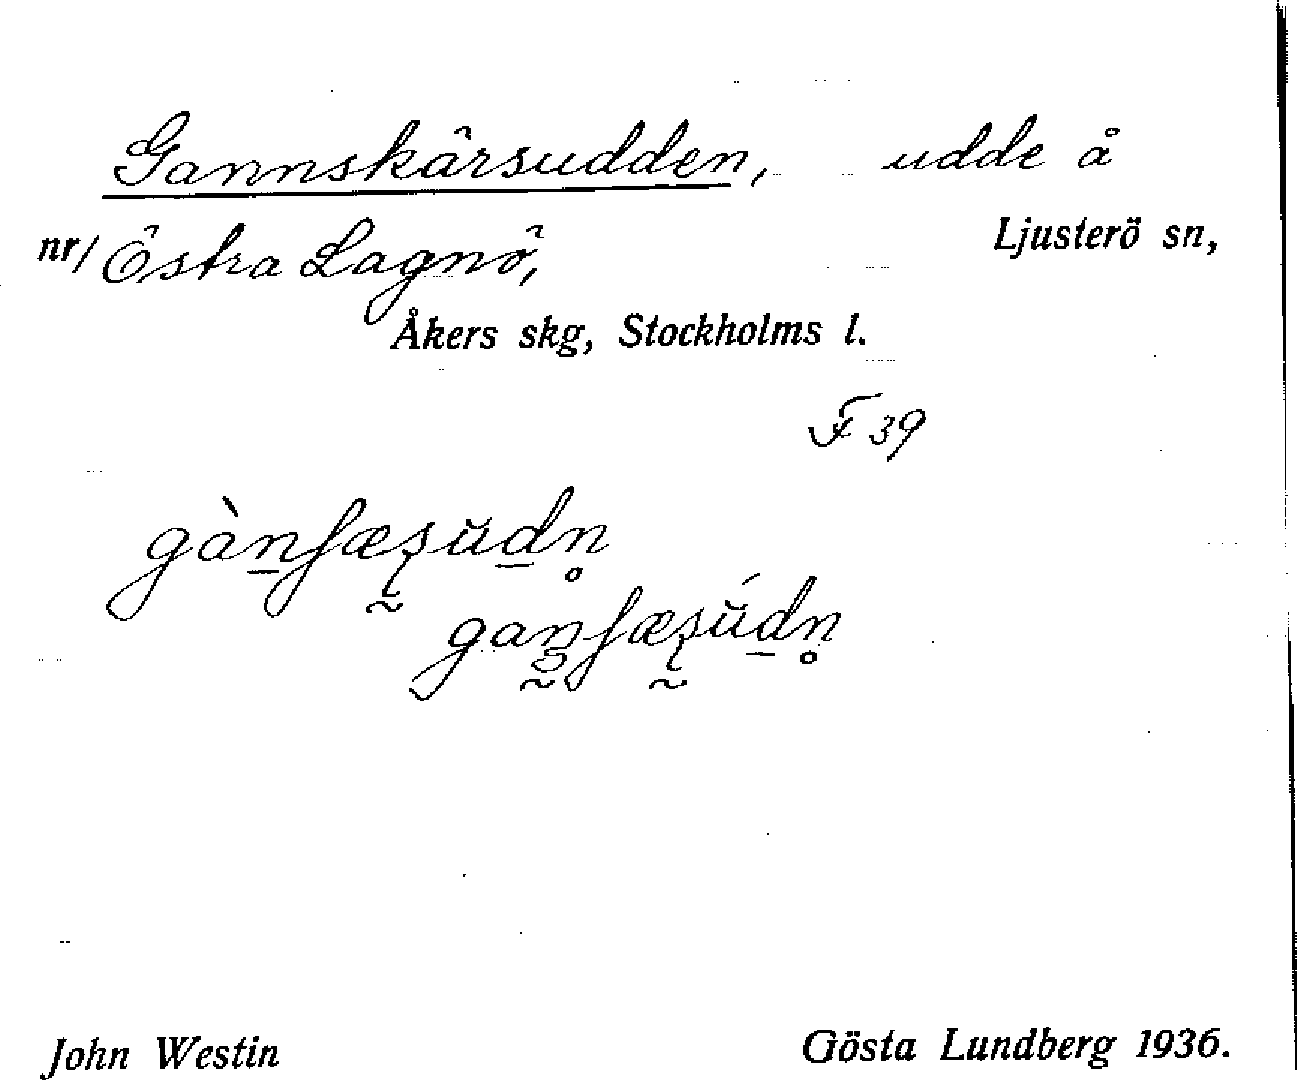 Gannskärsudden, udde å
nr/ Östra Lagnö, Ljusterö sn,
Åkers skg, Stockholms l.
F 39
John Westin Gösta Lundberg 1936.